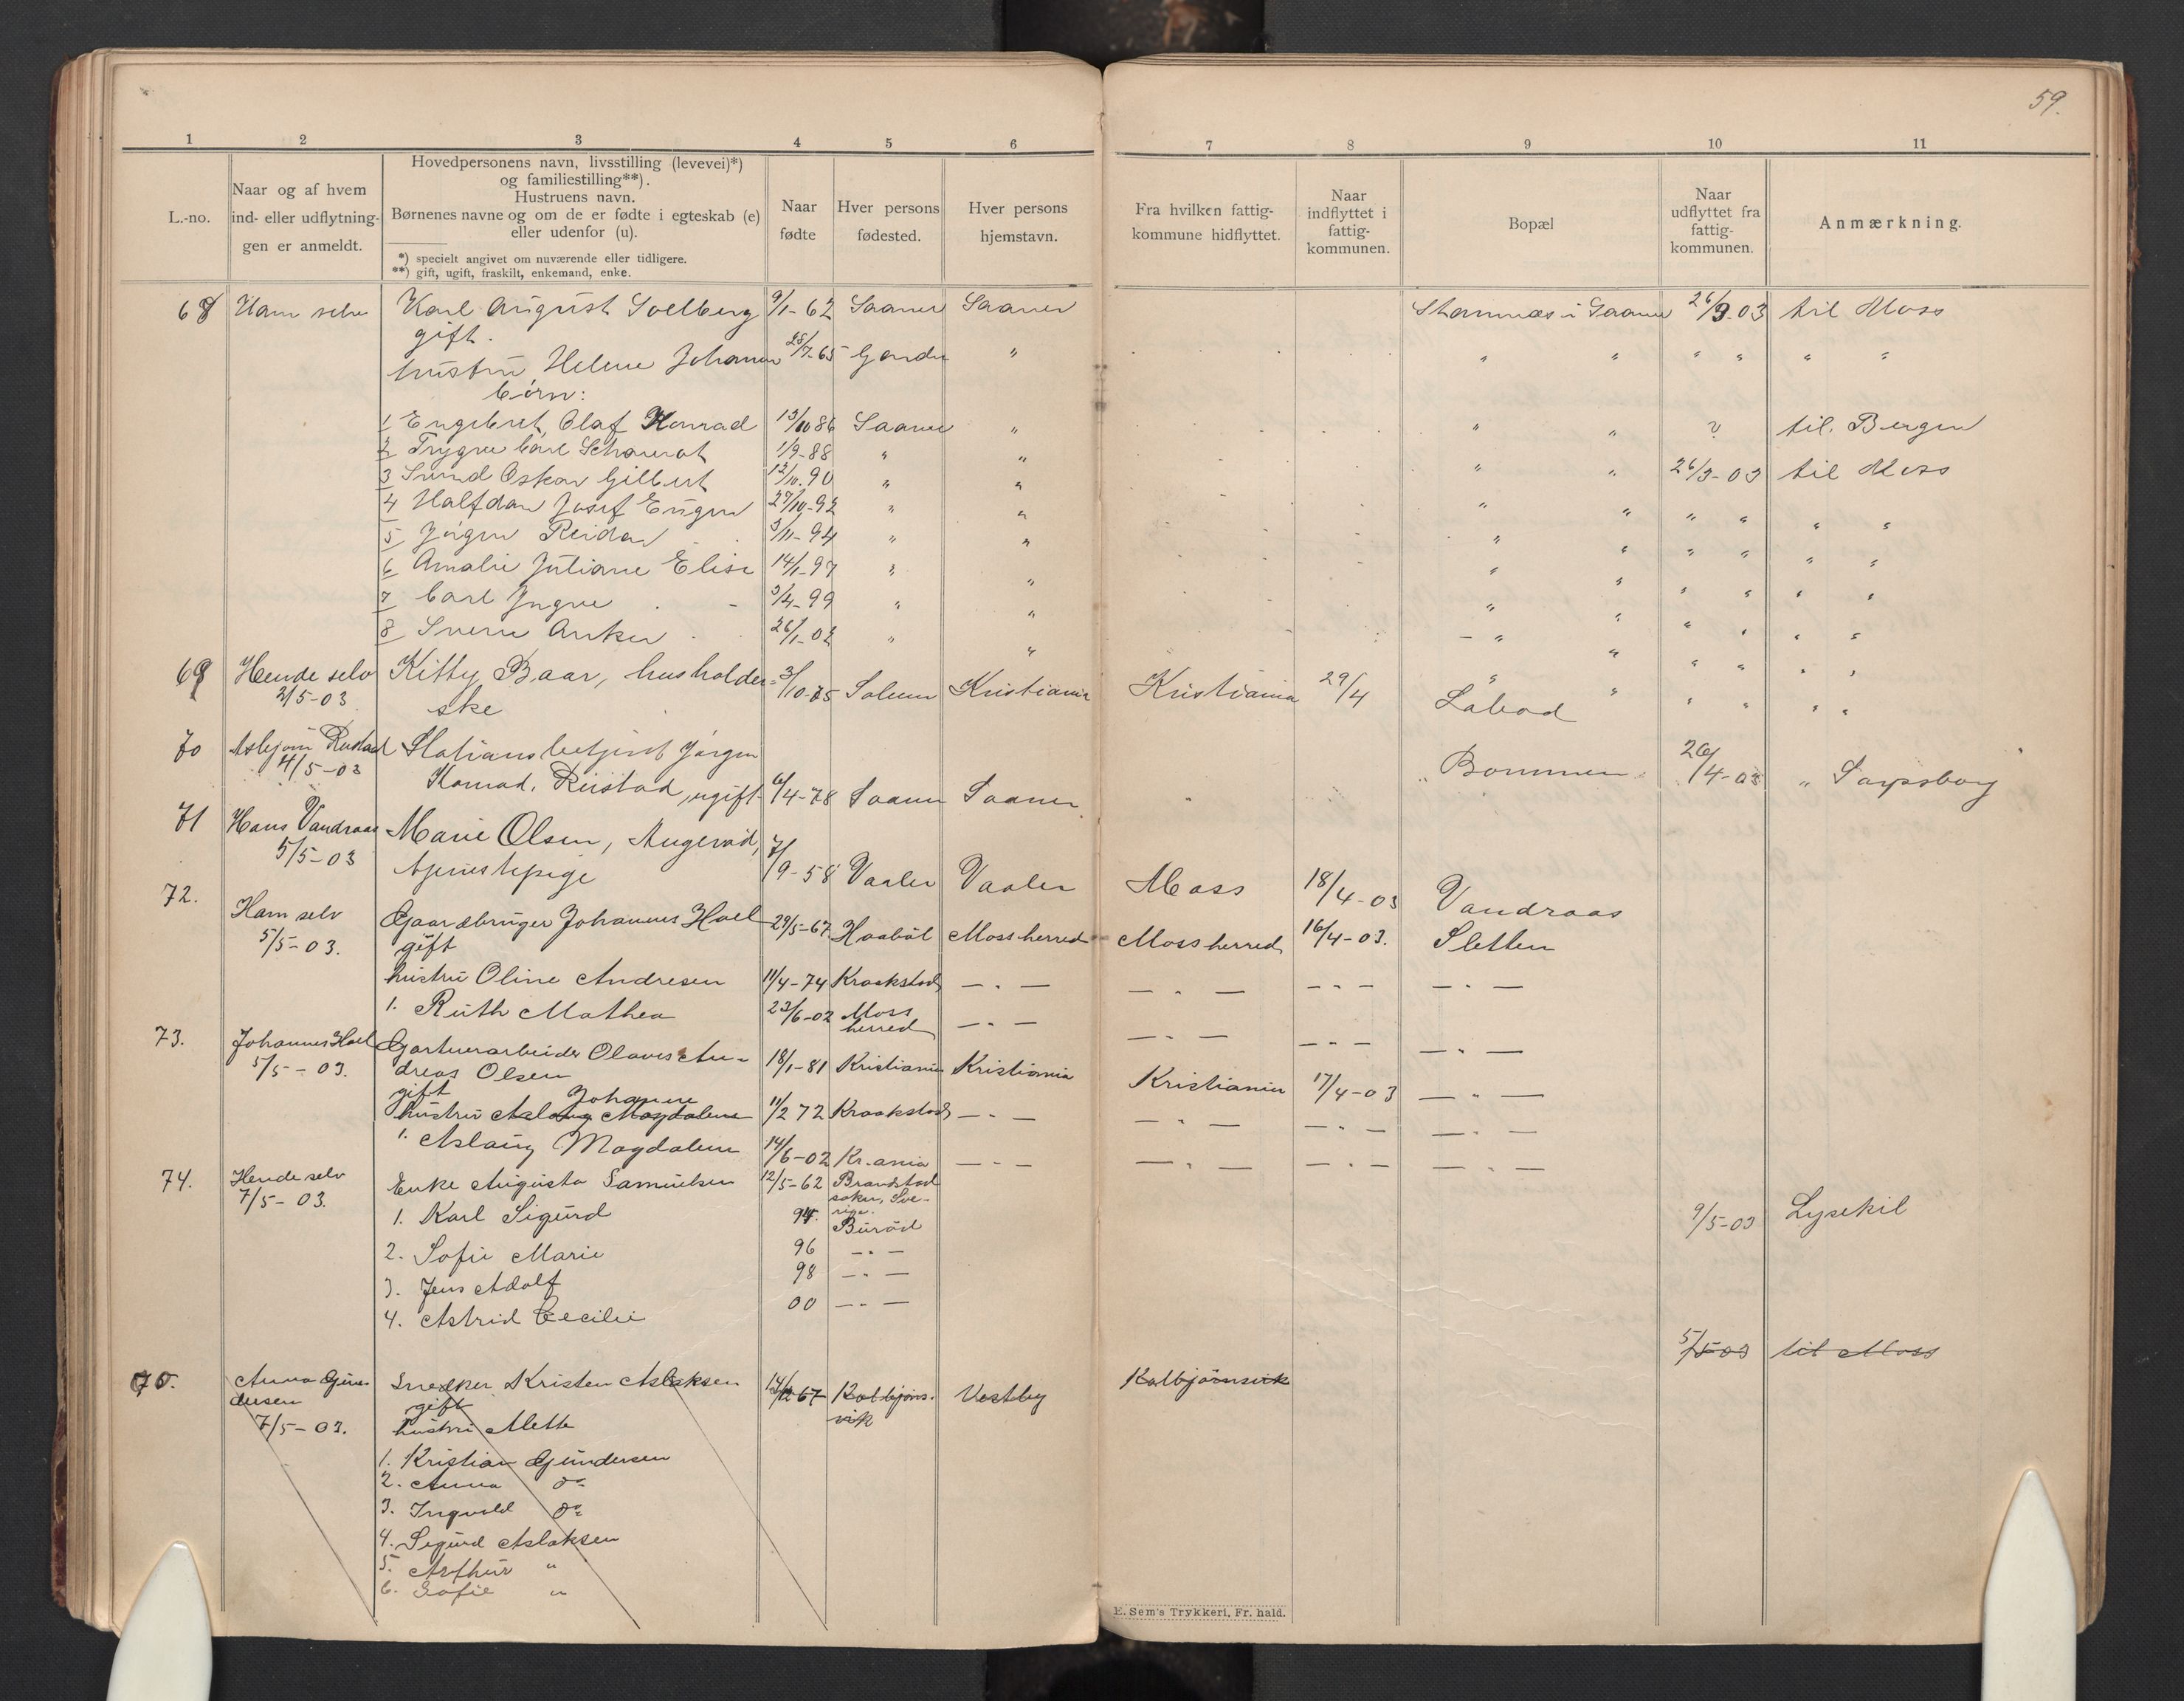 59.
1 2 3 4 5 6 7 8 9 10 11
L.-no.
Naar og af hvem
ind- eller udflytnin-
gen er anmeldt.
Hovedpersonens navn, livsstilling (levevei)*)
og familiestilling**).
Hustruens navn.
Børnenes navne og om de er fødte i egteskab (e)
eller udenfor (u).
*) specielt angivet om nuværende eller tidligere.
**) gift, ugift, fraskilt, enkemand, enke.
Naar
fødte
Hver persons
fødested.
Hver persons
hjemstavn.
Fra hvilken fattig-
kommune hidflyttet.
Naar
indflyttet i
fattig-
kommunen.
Bopæl
Naar
udflyttet fra
fattig-
kommunen.
Anmærkning.
68 Ham selv Karl August Solberg 9/1-62 Saaner Saaner i Saaner 26/3-03 til Moss
gift.
hustru Helene Johanne 28/7-65 " " " " " " "
børn:
1 Engebret Olaf Konrad 13/10 86 Saaner " " " ? til Bergen
2 Trygve Carl 1/9-88 " " " " 26/3-03 til Moss
3 Oskar Gilbert 12/10.90 " " " " " " " "
4 Halfdan Josef Eugen 27/10-92 " " " " " " " "
5 Jørgen Reidar 3/11-94 " " " " " " " "
6 Amalie Juliane Elise 14/1-97 " " " " " " " "
7 Carl Yngve 3/4-99 " " " " " " " "
8 Sverre Anker 26/1-02 " " " " " " " "
69 Hende selv Kitty Baar, husholder- 3/10-75 Solum Kristiania Kristiania 29/4 Labod
2/5-03 ske
70 Asbjørn Rustad Stationsbetjent Jørgen
4/5-03 Konrad Rustad, ugift 6/4-78 Saaner Saaner Bommen 26/4-03 " Sarpsborg
71 Hans Vandraas Marie Olsen, Augerød,
5/5-03 tjenestepige 7/9-58 Vaaler Vaaler Moss 18/4-03 Vandraas
72. Ham selv Gaardbruger Johannes Hoel 29/5-67 Haabøl Moss herred Moss herred 16/4-03. Sletten
5/5-03. gift
hustru Oline Andresen 11/4-74 Kraakstad — " — — " — — " — — " —
1. Ruth Mathea 23/6-02 Moss herred — " — — " — — " — — " —
73. Johannes Hoel Gartnerarbeider Olaves An-
5/5-03. dreas Olsen 18/1-81 Kristiania Kristiania Kristiania 17/4-03 — " —
gift Johanne
hustru Aslaug Magdalene 11/2 72 Kraakstad — " — — " — — " — — " —
1. Aslaug Magdalene 14/6-02 Kr.ania — " — — " — — " — — " —
74. Hende selv Enke Augusta Samuelsen 12/5-62 Brandstad
7/5-03. soken, Sve-
rige.
1. Karl Sigurd 94. Buröd 9/5-03 Lysekil
2. Sofie Marie 96 — " —
3. Jens Adolf 98 — " —
4. Astrid Cecilie 00 — " —
5/5-03 til Moss
75. Anna Gun-
dersen
7/5-03.
Snedker Kristen Aslaksen 67 Kolbjørns-
vik Vestby Kolbjørnsvik
gift
hustru Mette
1. Kristian Gundersen
2. Anna do
3. Ingvald do
4. Sigurd Aslaksen
5. Arthur "
6. Sofie "
E. Sem's Trykkeri, Fr. hald.